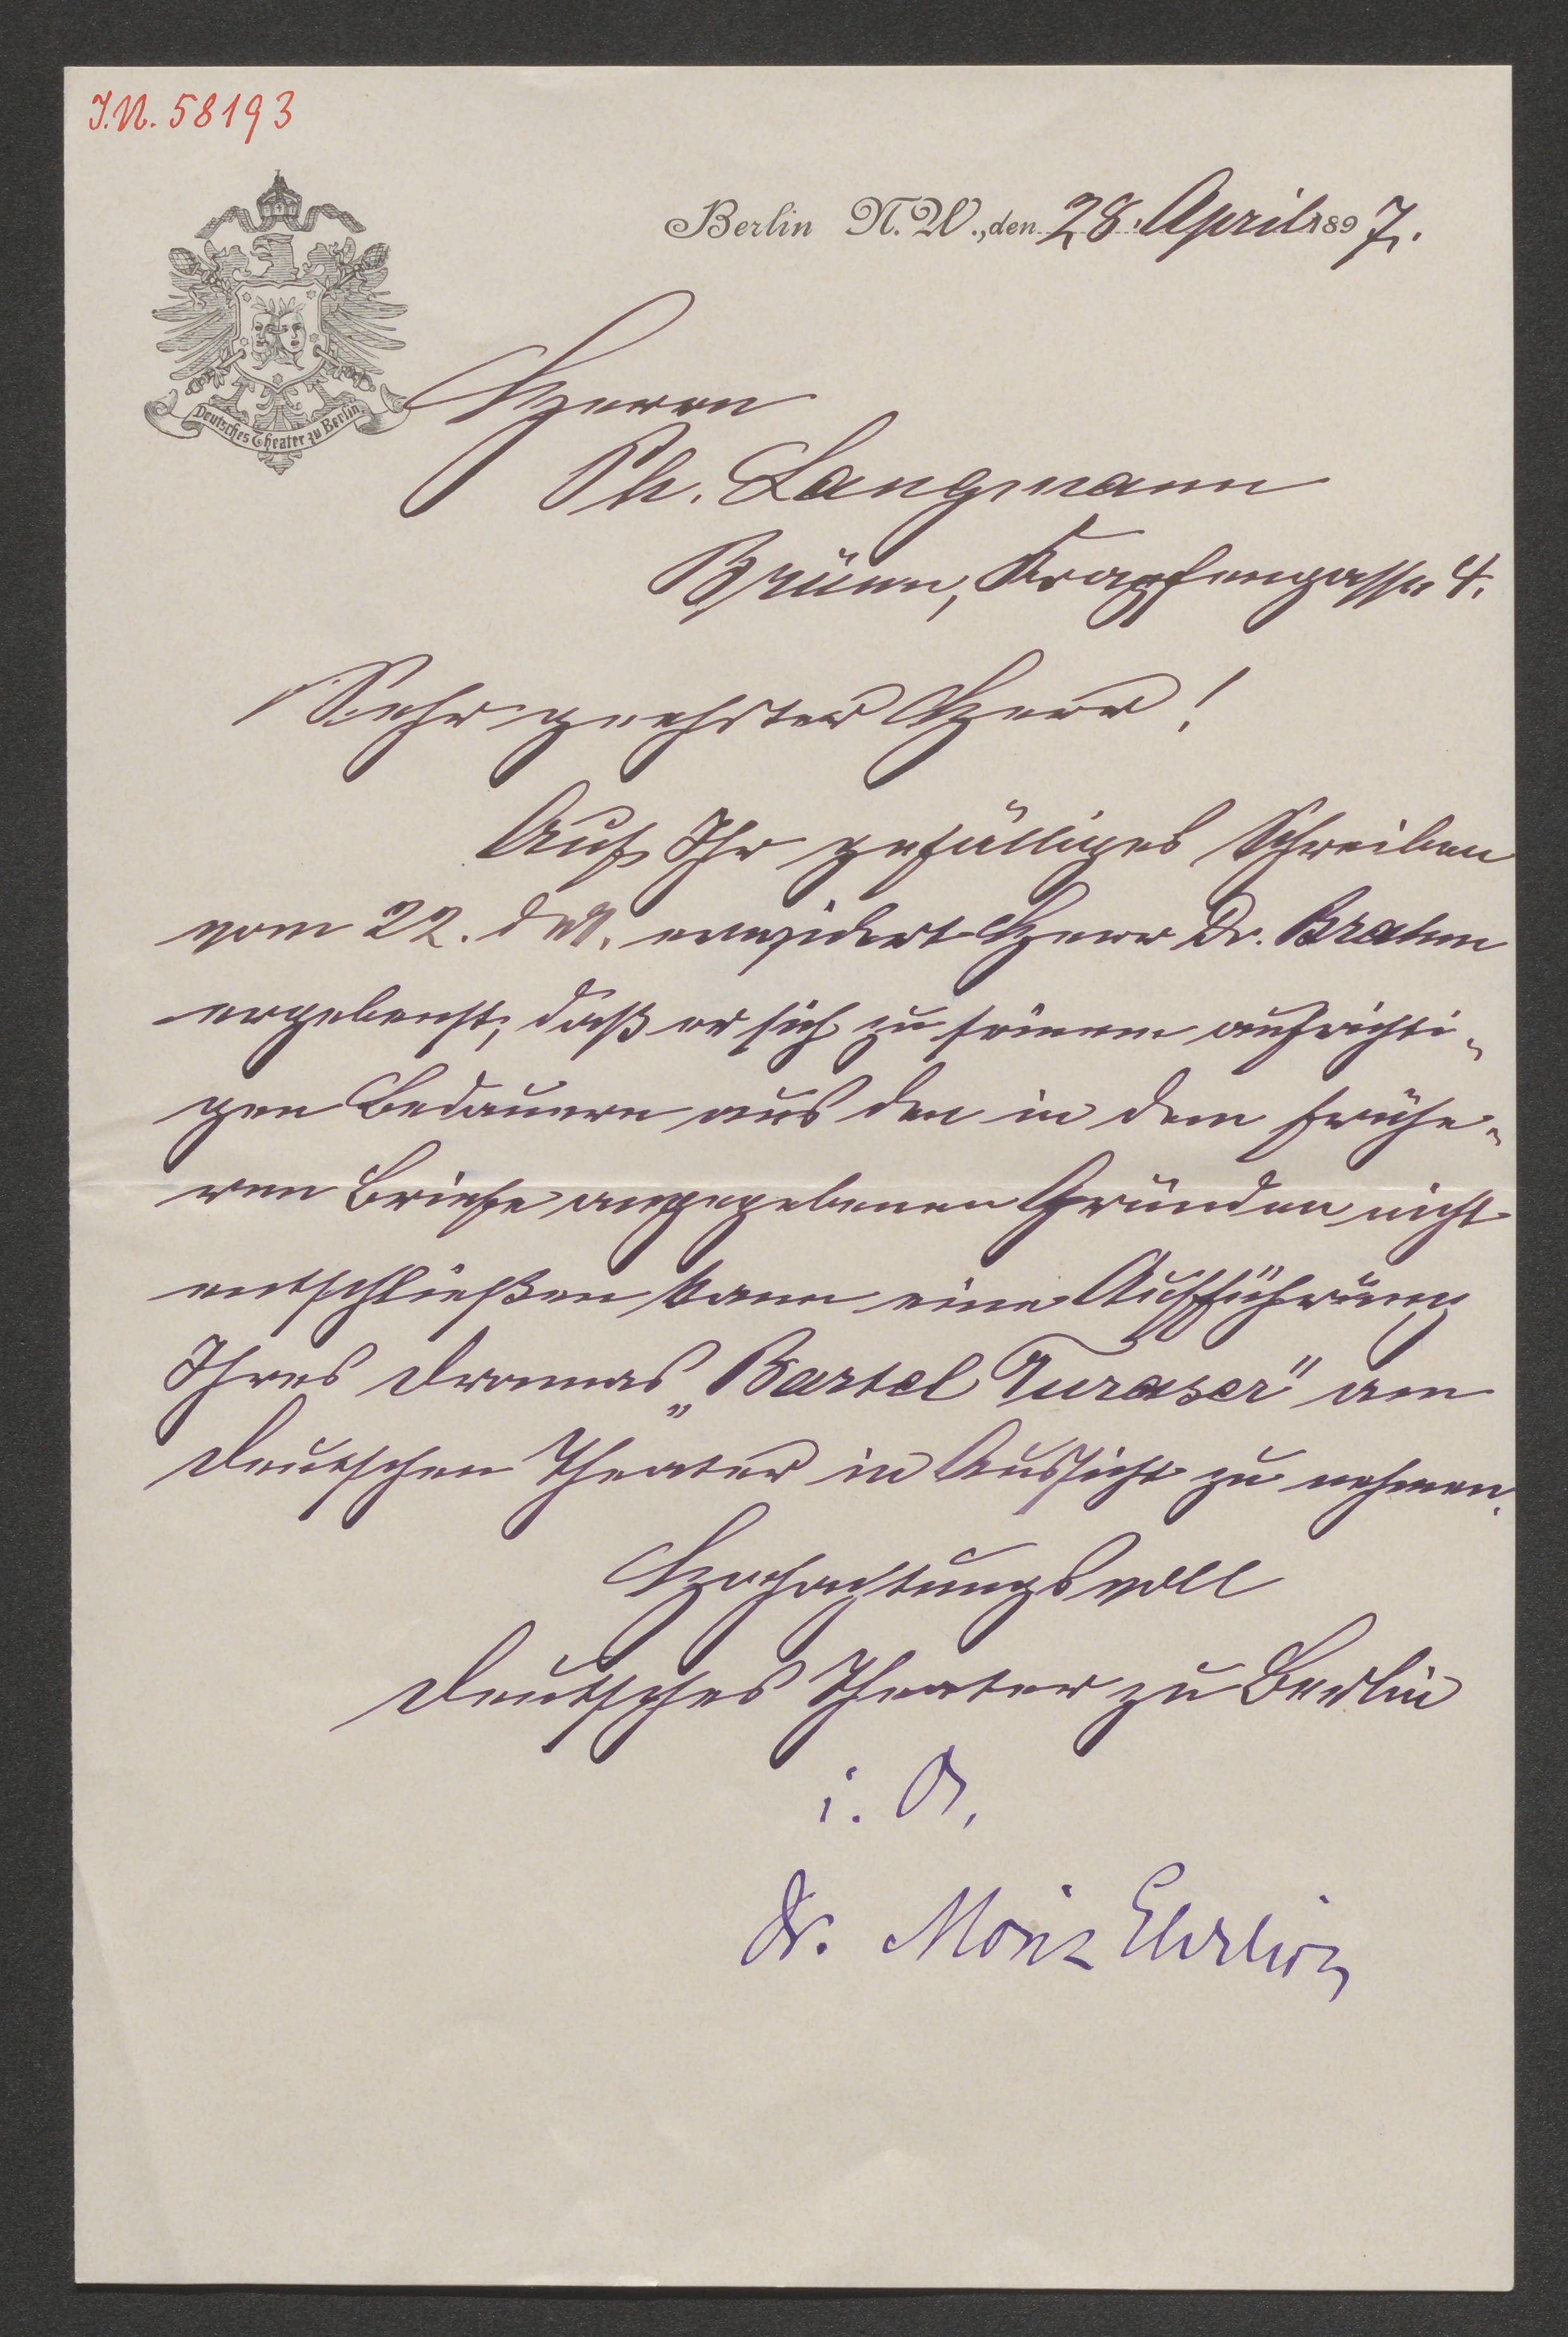 J.N. 58193
Berlin N.W., den 28. April 1897.
Deutsches Theater zu Berlin
Herrn
Ph. Langmann
Brünn, Krapfengasse 4.
Sehr geehrter Herr!
Auf Ihr gefälliges Schreiben
vom 22. d M. erwidert Herr Dr. Brahm
ergebenst, daß er sich zu seinem aufrichti-
gen Bedauern aus den in dem frühe-
ren Briefe angegebenen Gründen nicht
entschließen kann eine Aufführung
Ihres Dramas „Bartel Turaser" am
Deutschen Theater in Aussicht zu nehmen.
Hochachtungsvoll
Deutsches Theater zu Berlin
i. A.
Dr. Moriz Ehrlich